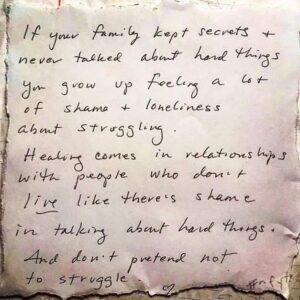 If your family kept secrets +
never talked about hard things
you grow up feeling a lot
of shame + loneliness
about struggling.
Healing comes in relationships
with people who don't
live like there's shame
in talking about hard things.
And don't pretend not
to struggle